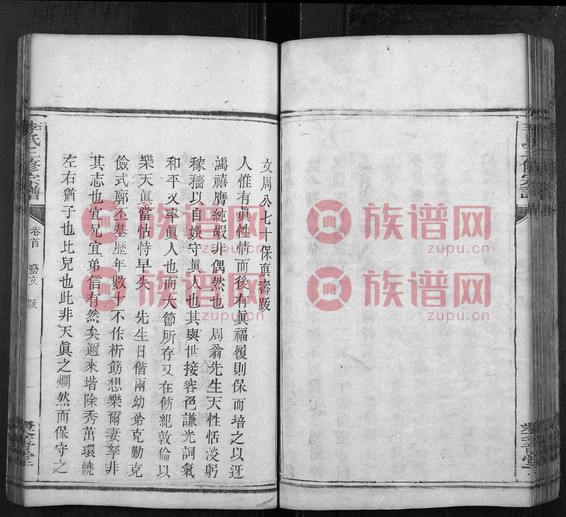 文周公七十保真壽跋
人惟有眞性情而後有眞福履則保而培之以迓
鴻禧膺純嘏非偶然也 周翁先生天性恬淡躬
稼穡以自娛守眞人也其與世接容色謙光詞氣
和平又率眞人也而大節所存又在飭紀敦倫以
樂天眞當怙恃早失 先生日偕兩幼弟克勤克
儉式廓丕基歷年數十不作析箸想樂爾妻孥非
其志也宜兄宜弟信有然矣邇來堦除秀茁環繞
左右猶子也比兒也此非天眞之爛然而保守之
李氏
修宗譜
卷首
藝文
跋
族谱网
zupu.cn
族谱网
zupu.cn
族谱网
zupu.cn
族谱网
zupu.cn